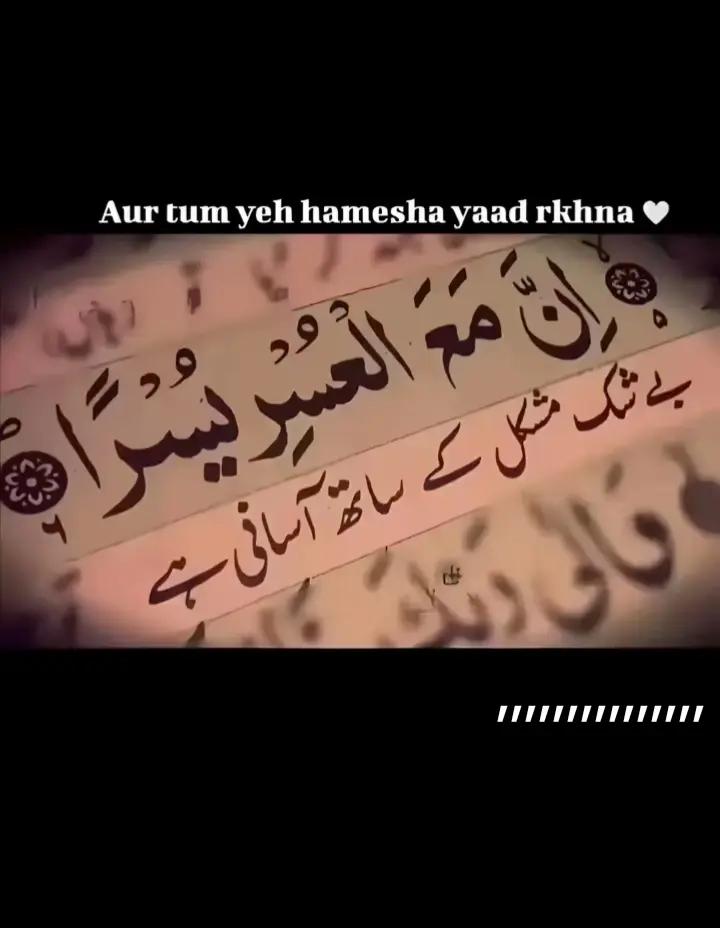 Aur tum yeh hamesha yaad rkhna 🤍
اِنَّ مَعَ الْعُسْرِ يُسْرًا ۶
بے شک مشکل کے ساتھ آسانی ہے